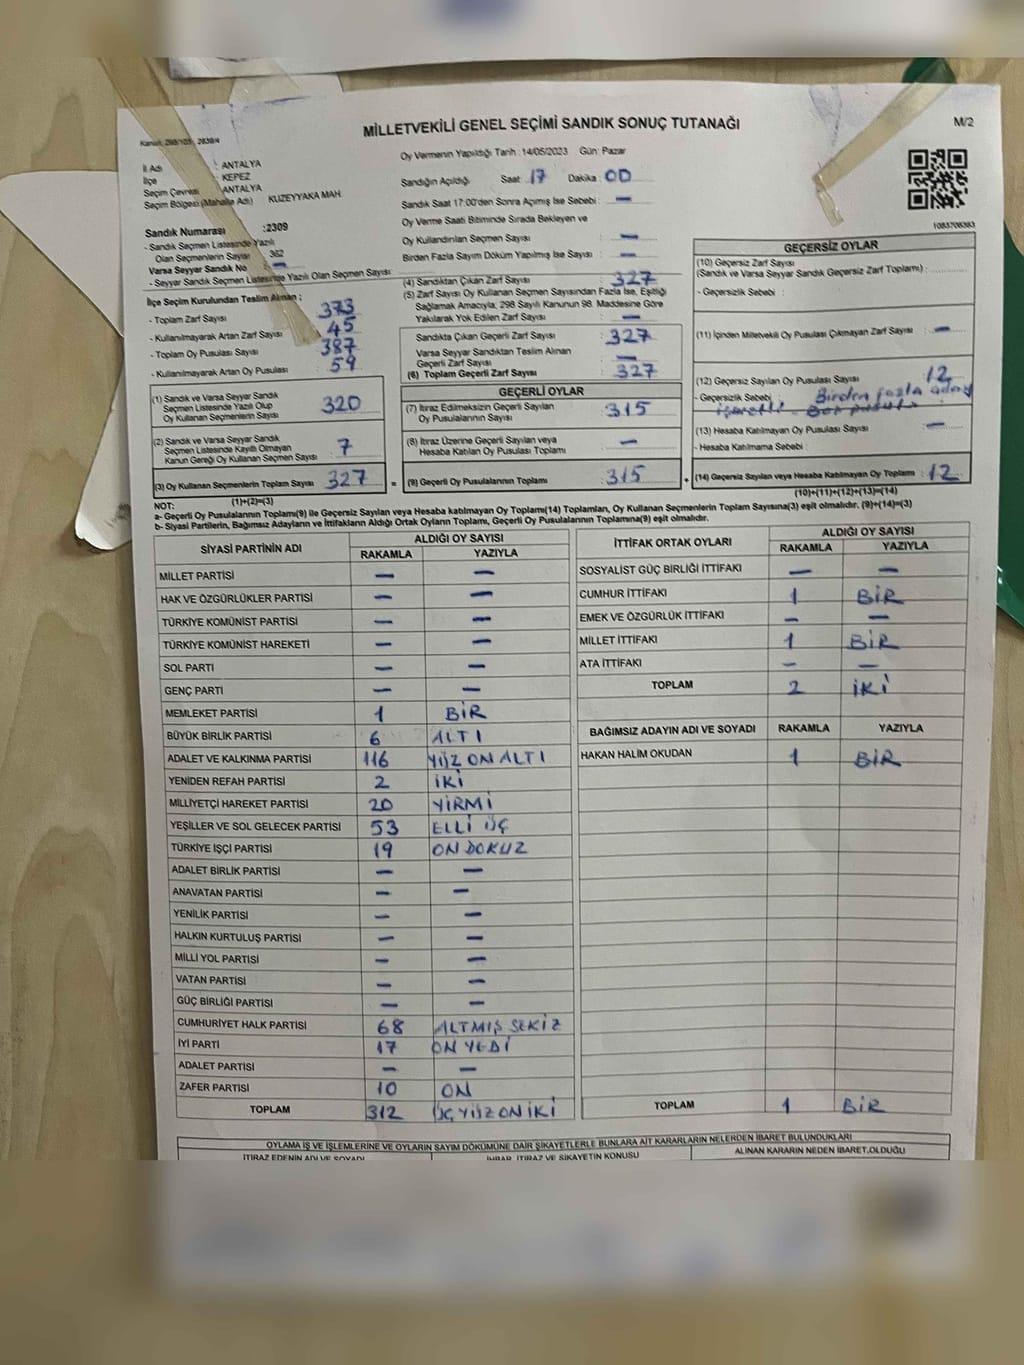 MİLLETVEKİLİ GENEL SEÇİMİ SANDIK SONUÇ TUTANAĞI
M/2
İl Adı : ANTALYA
İlçe : KEPEZ
Seçim Çevresi : ANTALYA
Seçim Bölgesi (Mahalle Adı) KUZEYYAKA MAH
Sandık Numarası :2309
- Sandık Seçmen Listesinde Yazılı
Olan Seçmenlerin Sayısı 362
Varsa Seyyar Sandık No —
- Seyyar Sandık Seçmen Listesinde Yazılı Olan Seçmen Sayısı
İlçe Seçim Kurulundan Teslim Alınan ;
- Toplam Zarf Sayısı 373
- Kullanılmayarak Artan Zarf Sayısı 45
- Toplam Oy Pusulası Sayısı 387
- Kullanılmayarak Artan Oy Pusulası : 59
(1) Sandık ve Varsa Seyyar Sandık
Seçmen Listesinde Yazılı Olup
Oy Kullanan Seçmenlerin Sayısı 320
(2) Sandık ve Varsa Seyyar Sandık
Seçmen Listesinde Kayıtlı Olmayan
Kanun Gereği Oy Kullanan Seçmen Sayısı 7
(3) Oy Kullanan Seçmenlerin Toplam Sayısı 327
(1)+(2)=(3)
Oy Vermenin Yapıldığı Tarih :14/05/2023 Gün: Pazar
Sandığın Açıldığı Saat 17 Dakika : 00
Sandık Saat 17:00'den Sonra Açımış İse Sebebi : —
Oy Verme Saati Bitiminde Sırada Bekleyen ve
Oy Kullandırılan Seçmen Sayısı : —
Birden Fazla Sayım Döküm Yapılmış İse Sayısı : —
(4) Sandıktan Çıkan Zarf Sayısı : 327
(5) Zarf Sayısı Oy Kullanan Seçmen Sayısından Fazla İse, Eşitliği
Sağlamak Amacıyla, 298 Sayılı Kanunun 98. Maddesine Göre
Yakılarak Yok Edilen Zarf Sayısı : —
Sandıkta Çıkan Geçerli Zarf Sayısı : 327
Varsa Seyyar Sandıktan Teslim Alınan
Geçerli Zarf Sayısı : —
(6) Toplam Geçerli Zarf Sayısı : 327
GEÇERLİ OYLAR
(7) İtiraz Edilmeksizin Geçerli Sayılan
Oy Pusulalarının Sayısı : 315
(8) İtiraz Üzerine Geçerli Sayılan veya
Hesaba Katılan Oy Pusulası Toplamı : —
= (9) Geçerli Oy Pusulalarının Toplamı : 315
1083706363
GEÇERSİZ OYLAR
(10) Geçersiz Zarf Sayısı
(Sandık ve Varsa Seyyar Sandık Geçersiz Zarf Toplamı) :
- Geçersizlik Sebebi :
(11) İçinden Milletvekili Oy Pusulası Çıkmayan Zarf Sayısı : —
(12) Geçersiz Sayılan Oy Pusulası Sayısı : 12
- Geçersizlik Sebebi : Birden fazla aday
(13) Hesaba Katılmayan Oy Pusulası Sayısı : —
- Hesaba Katılmama Sebebi :
+ (14) Geçersiz Sayılan veya Hesaba Katılmayan Oy Toplamı : 12
(10)+(11)+(12)+(13)=(14)
NOT:
a- Geçerli Oy Pusulalarının Toplamı(9) ile Geçersiz Sayılan veya Hesaba katılmayan Oy Toplamı(14) Toplamları, Oy Kullanan Seçmenlerin Toplam Sayısına(3) eşit olmalıdır. (9)+(14)=(3)
b- Siyasi Partilerin, Bağımsız Adayların ve İttifakların Aldığı Ortak Oyların Toplamı, Geçerli Oy Pusulalarının Toplamına(9) eşit olmalıdır.
SİYASİ PARTİNİN ADI ALDIĞI OY SAYISI
RAKAMLA YAZIYLA
MİLLET PARTİSİ — —
HAK VE ÖZGÜRLÜKLER PARTİSİ — —
TÜRKİYE KOMÜNİST PARTİSİ — —
TÜRKİYE KOMÜNİST HAREKETİ — —
SOL PARTİ — —
GENÇ PARTİ — —
MEMLEKET PARTİSİ 1 BİR
BÜYÜK BİRLİK PARTİSİ 6 ALTI
ADALET VE KALKINMA PARTİSİ 116 YÜZ ON ALTI
YENİDEN REFAH PARTİSİ 2 İKİ
MİLLİYETÇİ HAREKET PARTİSİ 20 YİRMİ
YEŞİLLER VE SOL GELECEK PARTİSİ 53 ELLİ ÜÇ
TÜRKİYE İŞÇİ PARTİSİ 19 ON DOKUZ
ADALET BİRLİK PARTİSİ — —
ANAVATAN PARTİSİ — —
YENİLİK PARTİSİ — —
HALKIN KURTULUŞ PARTİSİ — —
MİLLİ YOL PARTİSİ — —
VATAN PARTİSİ — —
GÜÇ BİRLİĞİ PARTİSİ — —
CUMHURİYET HALK PARTİSİ 68 ALTMIŞ SEKİZ
İYİ PARTİ 17 ON YEDİ
ADALET PARTİSİ — —
ZAFER PARTİSİ 10 ON
TOPLAM 312 ÜÇ YÜZ ON İKİ
İTTİFAK ORTAK OYLARI ALDIĞI OY SAYISI
RAKAMLA YAZIYLA
SOSYALİST GÜÇ BİRLİĞİ İTTİFAKI — —
CUMHUR İTTİFAKI 1 BİR
EMEK VE ÖZGÜRLÜK İTTİFAKI — —
MİLLET İTTİFAKI 1 BİR
ATA İTTİFAKI — —
TOPLAM 2 İKİ
BAĞIMSIZ ADAYIN ADI VE SOYADI RAKAMLA YAZIYLA
HAKAN HALİM OKUDAN 1 BİR
TOPLAM 1 BİR
OYLAMA İŞ VE İŞLEMLERİNE VE OYLARIN SAYIM DÖKÜMÜNE DAİR ŞİKAYETLERLE BUNLARA AİT KARARLARIN NELERDEN İBARET BULUNDUKLARI
İTİRAZ EDENİN ADI VE SOYADI İHBAR, İTİRAZ VE ŞİKAYETİN KONUSU ALINAN KARARIN NEDEN İBARET OLDUĞU